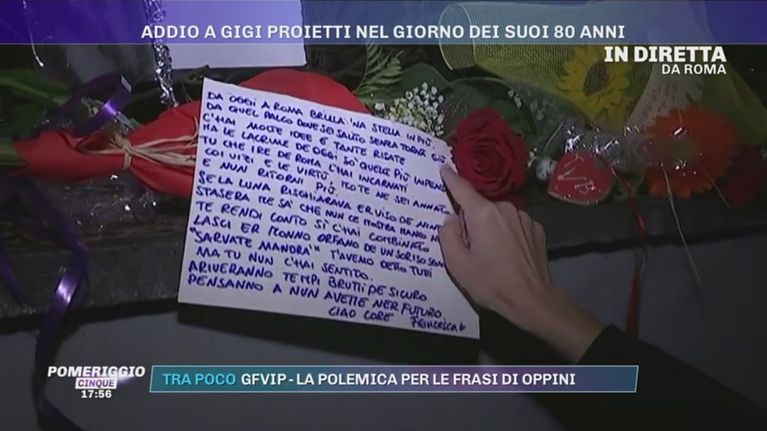 ADDIO A GIGI PROIETTI NEL GIORNO DEI SUOI 80 ANNI
IN DIRETTA
DA ROMA
DA OGGI A ROMA BRILLA 'NA STELLA IN PIÙ.
DA QUEL PALCO DOVE SEI SALITO SENZA TORNÀ GIÙ
C'HAI MOSTE IDEE E TANTE RISATE
MA LE LACRIME DE OGGI SO' QUELLE PIÙ
TU CHE I RE DE ROMA C'HAI INCARNATI
COI VIZI E LE VIRTÙ MO TE NE SEI
E NUN RITORNI PIÙ.
SE LA LUNA RISCHIARAVA ER VISO DE
STASERA ME SA' CHE NUN CE MOSTRA MANCO
TE RENDI CONTO SÌ C'HAI COMBINATO
LASCI ER MONNO ORFANO DE UN SORISO
"SARVATE MANDRA'" T'AVEMO DETTO TUTTI
MA TU NUN C'HAI SENTITO.
ARIVERANNO TEMPI BRUTTI DE SICURO
PENSANNO A NUN AVETTE NER FUTURO.
CIAO CORE FEDERICA
TVB
POMERIGGIO
CINQUE
17:56
TRA POCO GFVIP - LA POLEMICA PER LE FRASI DI OPPINI